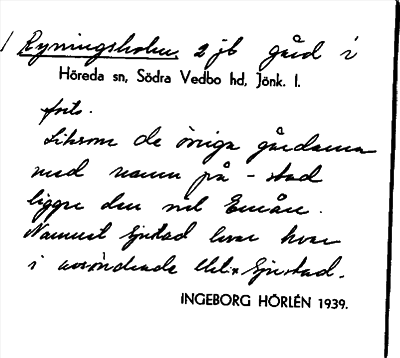 Ryningsholm, 2 jb gård i
Höreda sn, Södra Vedbo hd, Jönk. l.
forts.
Liksom de övriga gårdarna
med namn på -stad
ligger den vid Emån.
Namnet Sjustad lever kvar
i använda Ulvs Sjustad.
INGEBORG HÖRLÉN 1939.